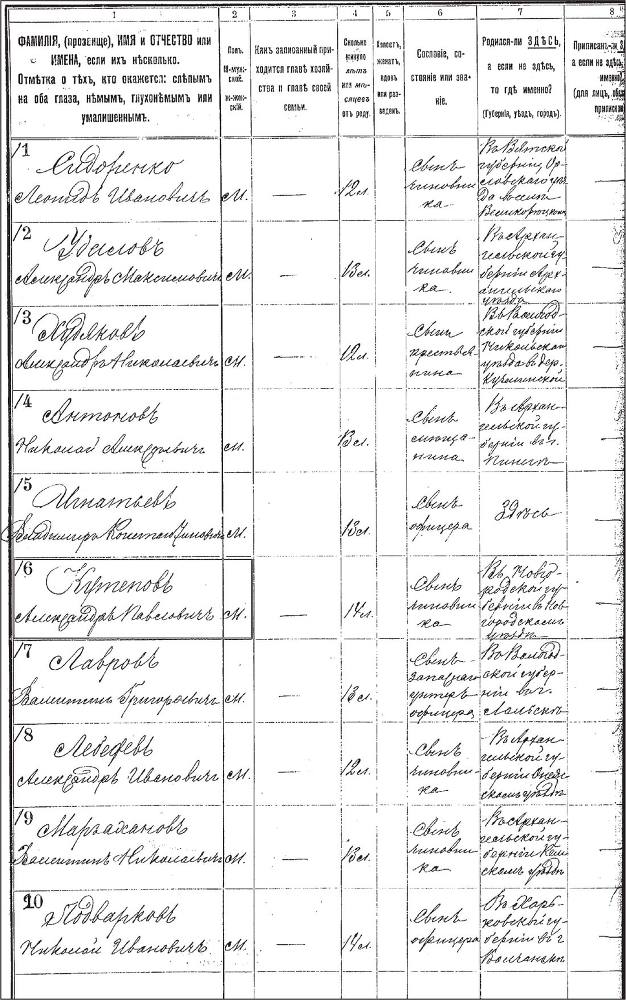 1
2
3
4
5
6
7
8
ФАМИЛІЯ, (прозвище), ИМЯ и ОТЧЕСТВО или
ИМЕНА, если ихъ нѣсколько.
Отмѣтка о тѣхъ, кто окажется: слѣпымъ
на оба глаза, нѣмымъ, глухонѣмымъ или
умалишеннымъ.
Полъ.
М-муж-
ской.
Ж-жен-
скій.
Какъ записанный при-
ходится главѣ хозяй-
ства и главѣ своей
семьи.
Сколько
минуло
лѣтъ
или мѣ-
сяцевъ
отъ роду.
Холостъ,
женатъ,
вдовъ
или раз-
веденъ.
Сословіе, со-
стояніе или зва-
ніе.
Родился-ли ЗДѢСЬ,
а если не здѣсь,
то гдѣ именно?
(Губернія, уѣздъ, городъ).
Приписанъ-ли
а если не здѣсь
именно?
(для лицъ,
приписки
1
Сидоренко
Леонидъ Ивановичъ
М.
—
12 л.
Сынъ
чиновни
ка
Въ Вятской
губерніи, Ор-
ловскаго уѣз
да
—
2
Удаловъ
Александръ Максимовичъ
М.
—
13 л.
Сынъ
чиновни
ка.
Въ Архан-
гельской гу
берніи Арх-
ангельскаго
уѣзда
—
3
Худяковъ
Александръ Николаевичъ
М.
—
12 л.
Сынъ
крестья
нина
Въ Вологод-
ской губерніи
Никольскаго
уѣзда въ дер.
—
4
Антоновъ
Николай Алексѣевичъ
М.
—
13 л.
Сынъ
мѣща
нина
Въ Архан-
гельской гу-
берніи въ г.
Пинегѣ
—
5
Игнатьевъ
Владиміръ Константиновичъ
М.
—
13 л.
Сынъ
офицера
Здѣсь
—
6
Кутеповъ
Александръ Павловичъ
М.
—
14 л.
Сынъ
чиновни
ка
Въ Новго-
родской гу
берніи въ Нов
городскомъ
уѣздѣ
—
7
Лавровъ
Валентинъ Григорьевичъ
М.
—
13 л.
Сынъ
запаснаго
унтеръ
офицера
Въ Вологод
ской губер-
ніи въ г.
Лальскѣ
—
8
Лебедевъ
Александръ Ивановичъ
М.
—
12 л.
Сынъ
чиновни
ка
Въ Архан
гельской гу-
берніи Онеж
скомъ уѣздѣ
—
9
Маргажановъ
Валентинъ Николаевичъ
М.
—
13 л.
Сынъ
чиновни
ка
Въ Архан-
гельской гу-
берніи Кем
скомъ уѣздѣ
—
10
Подварковъ
Николай Ивановичъ
М.
—
14 л.
Сынъ
офицера
Въ Харь-
ковской гу-
берніи въ г
Волчанскѣ
—